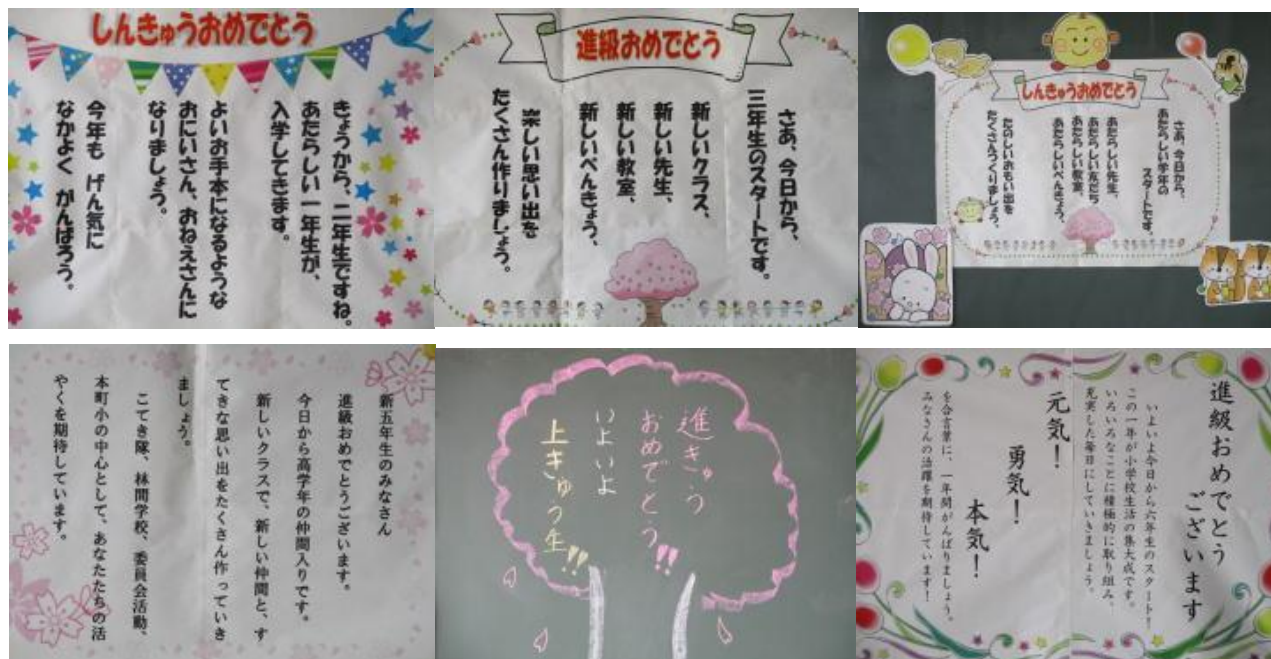 しんきゅうおめでとう
きょうから、二年生ですね。
あたらしい一年生が、
入学してきます。
よいお手本になるような
おにいさん、おねえさんに
なりましょう。
今年も げん気に
なかよく がんばろう。
進級おめでとう
さあ、今日から、
三年生のスタートです。
新しいクラス、
新しい先生、
新しい教室、
新しいべんきょう、
楽しい思い出を
たくさん作りましょう。
しんきゅうおめでとう
さあ、今日から、
あたらしい学年の
スタートです。
あたらしい先生、
あたらしい友だち
あたらしい教室、
あたらしいべんきょう、
たのしいおもい出を
たくさんつくりましょう。
新五年生のみなさん
進級おめでとうございます。
今日から高学年の仲間入りです。
新しいクラスで、新しい仲間と、す
てきな思い出をたくさん作っていき
ましょう。
こてき隊、林間学校、委員会活動、
本町小の中心として、あなたたちの活
やくを期待しています。
進きゅう
おめでとう!!
いよいよ
上きゅう生!!
進級おめでとう
ございます
いよいよ今日から六年生のスタート!
この一年が小学校生活の集大成です。
いろいろなことに積極的に取り組み、
充実した毎日にしていきましょう。
元気!
勇気!
本気!
を合言葉に、一年間がんばりましょう。
みなさんの活躍を期待しています!